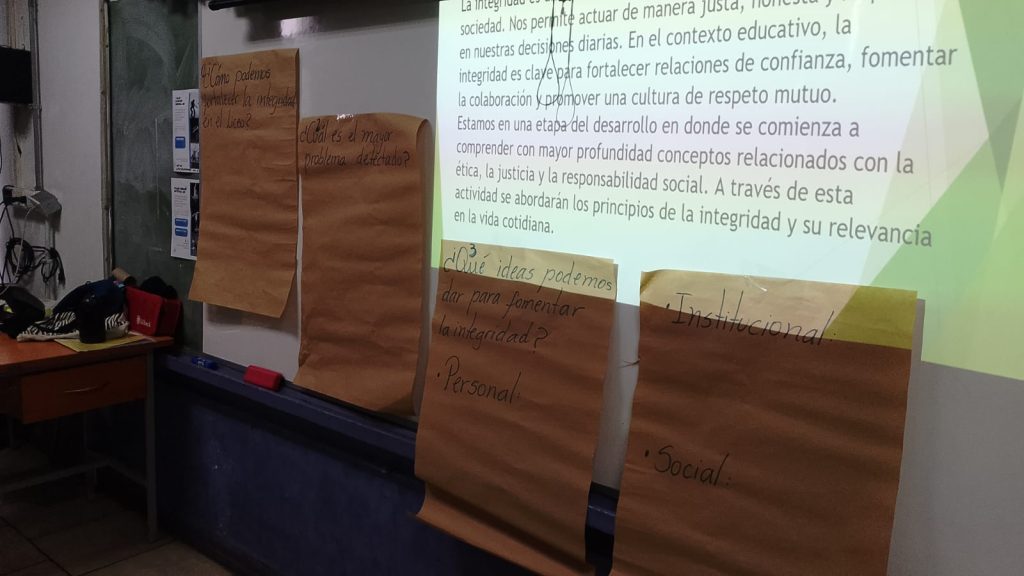 La integridad es
sociedad. Nos permite actuar de manera justa, honesta y
en nuestras decisiones diarias. En el contexto educativo, la
integridad es clave para fortalecer relaciones de confianza, fomentar
la colaboración y promover una cultura de respeto mutuo.
Estamos en una etapa del desarrollo en donde se comienza a
comprender con mayor profundidad conceptos relacionados con la
ética, la justicia y la responsabilidad social. A través de esta
actividad se abordarán los principios de la integridad y su relevancia
en la vida cotidiana.
¿Cómo podemos
fortalecer la integridad
en el Liceo?
¿Cuál es el mayor
problema detectado?
3
¿Qué ideas podemos
dar para fomentar
la integridad?
• Personal:
• Institucional:
• Social: